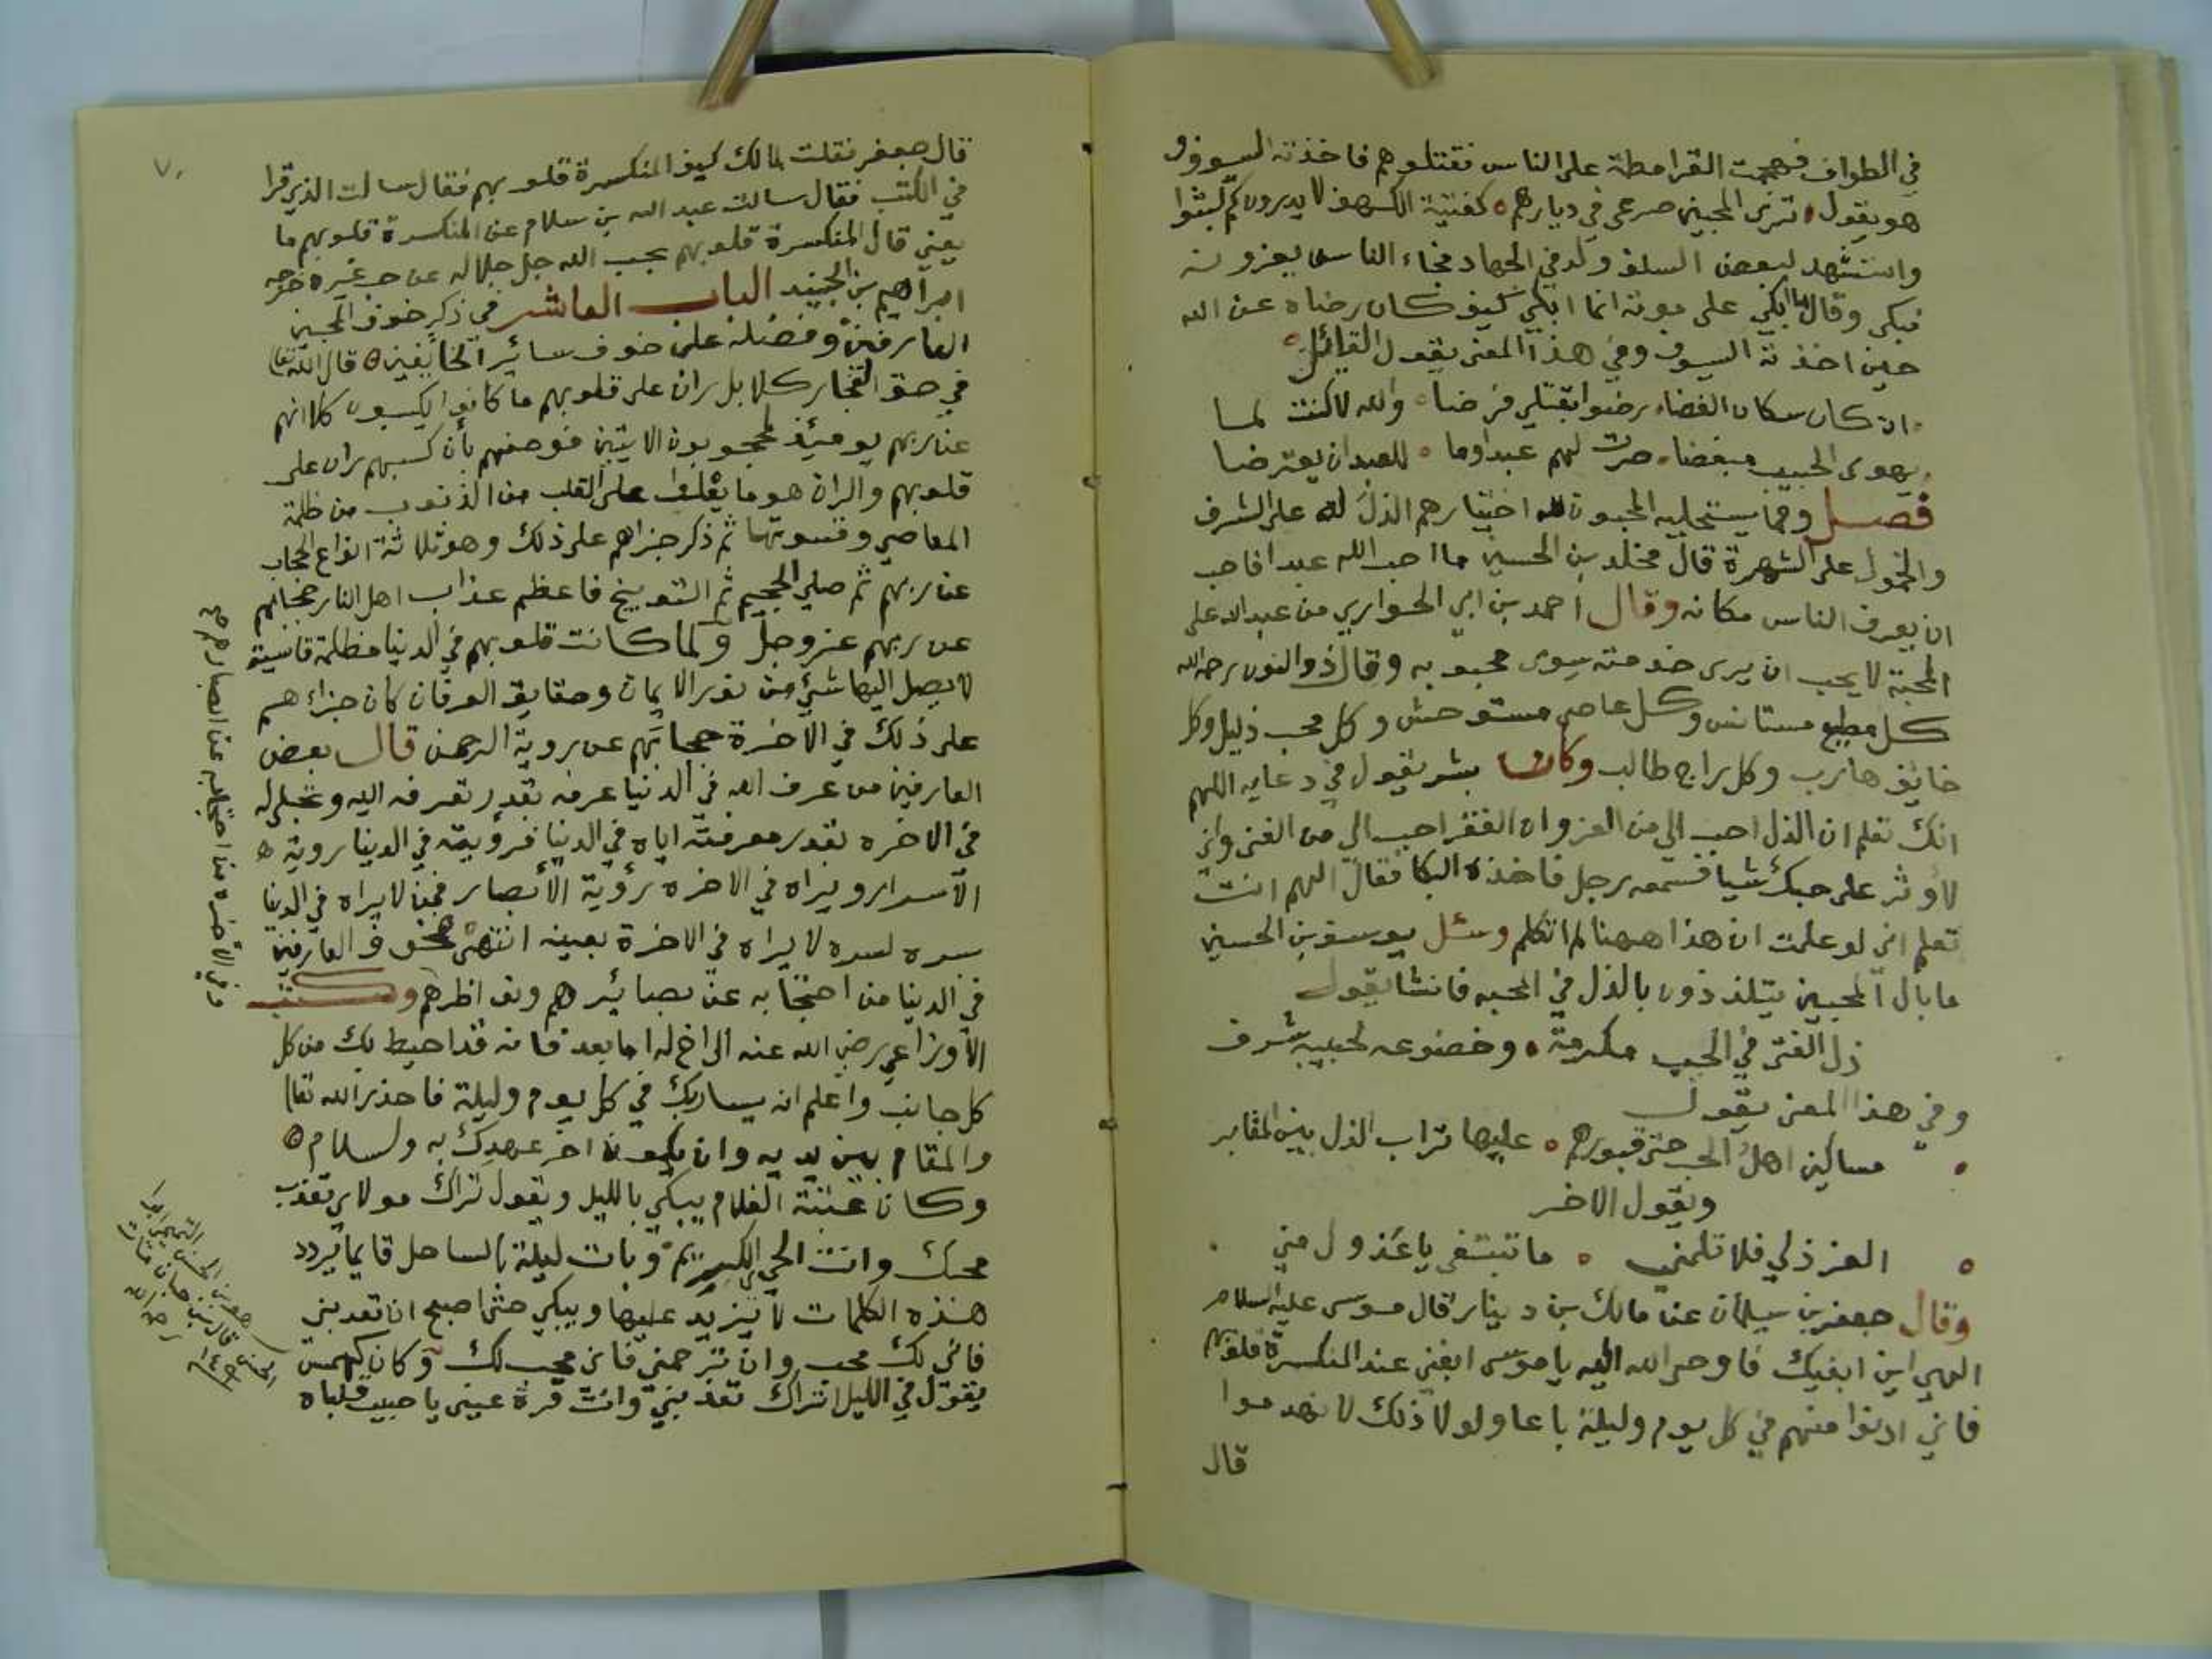 في الطواف فهجمت القرامطة على الناس فقتلوهم فاخذته السيوف و
هو يقول ترى المحبين صرعى في ديارهم كفتية الكهف لا يدرون كم لبثوا
واستشهد لبعض السلف ولد في الجهاد فجاء الناس يعزونه
فبكى وقال ما ابكي على موته انما ابكي كيف كان رضاه عن الله
حين اخذته السيوف وفي هذا المعنى يقول القائل
ان كان سكان الغضا رضوا بقتلي فرضا والله لا كنت لما
يهوى الحبيب مبغضا صرت لهم عبدا وما للعبد ان يعترضا
فصل ومما يستجلبه المحبون لله اختيارهم الذل له على الشرف
والخمول على الشهرة قال مخلد بن الحسين ما احب الله عبدا فاحب
ان يعرف الناس مكانه وقال احمد بن ابي الحواري من عبد الله على
المحبة لا يحب ان يرى خدمته سوى محبوبه وقال ذوالنون رحمه الله
كل مطيع مستانس وكل عاصي مستوحش وكل محب ذليل وكل
خايف هارب وكل راج طالب وكان بشر يقول في دعايه اللهم
انك تعلم ان الذل احب الي من العز وان الفقر احب الي من الغنى واني
لا اوثر على حبك شيا فسمعه رجل فاخذه البكا فقال اللهم انت
تعلم اني لو علمت ان هذا ههنا لم اتكلم وسئل يوسف بن الحسين
ما بال المحبين يتلذذون بالذل في المحبه فانشا يقول
ذل الفتى في الحب مكرمة وخضوعه لحبيبه شرف
وفي هذا المعنى يقول
مساكين اهل الحب حتى قبورهم عليها تراب الذل بين المقابر
ويقول الاخر
العز ذلي فلا تلمني ما تبتغي يا عذول مني
وقال جعفر بن سيلمان عن مالك بن دينار قال موسى عليه السلام
الهي اين ابغيك فاوحى الله اليه يا موسى ابغني عند المنكسرة قلوبهم
فاني ادنوا منهم في كل يوم وليلة باعا ولولا ذلك لانهدموا
قال
٧٠
قال جعفر فقلت لمالك كيف المنكسرة قلوبهم فقال سالت الذي قرا
في الكتب فقال سالت عبد الله بن سلام عن المنكسرة قلوبهم ما
يعني قال المنكسرة قلوبهم بحب الله جل جلاله عن حب غيره خرجه
ابراهيم بن الجنيد الباب العاشر في ذكر خوف المحبين
العارفين وفضله على خوف سائر الخايفين قال الله تعالى
في حق الفجار كلا بل ران على قلوبهم ما كانوا يكسبون كلا انهم
عن ربهم يومئذ لمحجوبون الايتين فوصفهم بأن كسبهم ران على
قلوبهم والران هو ما يغلف على القلب من الذنوب من ظلمة
المعاصي وقسوتها ثم ذكر جزاهم على ذلك وهو ثلاثة انواع الحجاب
عن ربهم ثم صلي الجحيم ثم التوبيخ فاعظم عذاب اهل النار حجابهم
عن ربهم عز وجل ولما كانت قلوبهم في الدنيا مظلمة قاسية
لا يصل اليها شئ من نور الايمان وحقايق العرفان كان جزاءهم
على ذلك في الاخرة حجابهم عن روية الرحمن قال بعض
العارفين من عرف الله في الدنيا عرفه بقدر تعرفه اليه وتجلى له
في الاخره بقدر معرفته اياه في الدنيا فرؤيته في الدنيا روية
الاسرار ويراه في الاخره رؤية الأبصار فمن لا يراه في الدنيا
بسره لا يراه في الاخرة بعينه انتهى فخوف العارفين
في الدنيا من احتجابه عن بصائرهم ونواظرهم وكتب
الاوزاعي رضي الله عنه الى اخ له اما بعد فانه قد احيط بك من كل
كل جانب واعلم انه يسار بك في كل يوم وليلة فاحذر الله تعالى
والمقام بين يديه وان يكون اخر عهدك به والسلام
وكان عتبة الغلام يبكي بالليل ويقول تراك مولاي تعذب
محبك وانت الحي الكريم وبات ليلة بالساحل قايما يردد
هذه الكلمات لا يزيد عليها ويبكي حتى اصبح ان تعذبني
فاني لك محب وان ترحمني فاني محب لك وكان كهمس
يقول في الليل اتراك تعذبني وانت قرة عيني يا حبيب قلباه
وفي الأخره من احتجابه عن ابصارهم صح